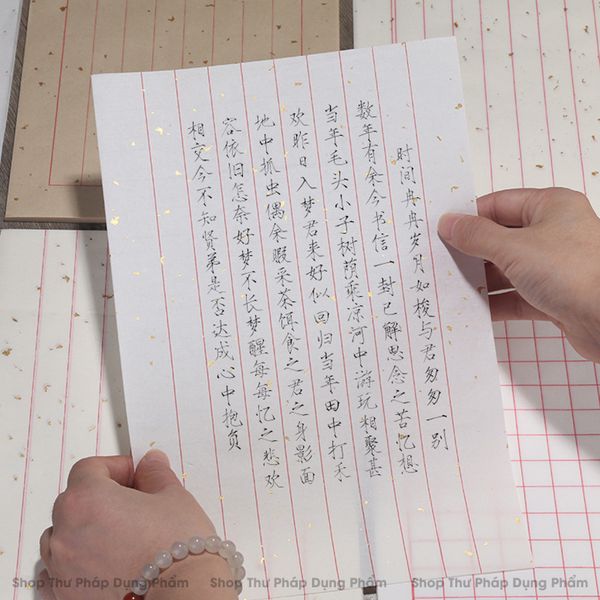 时间冉冉岁月如梭与君匆匆一别
数年有余今书信一封已解思念之苦忆想
当年毛头小子树荫乘凉河中游玩相聚甚
欢昨日入梦君来好似回归当年田中打禾
地中抓虫偶余暇采茶饵食之君之身影面
容依旧怎奈好梦不长梦醒每每忆之悲欢
相交今不知贤弟是否达成心中抱负
Shop Thư Pháp Dụng Phẩm Shop Thư Pháp Dụng Phẩm Shop Thư Pháp Dụng Phẩm